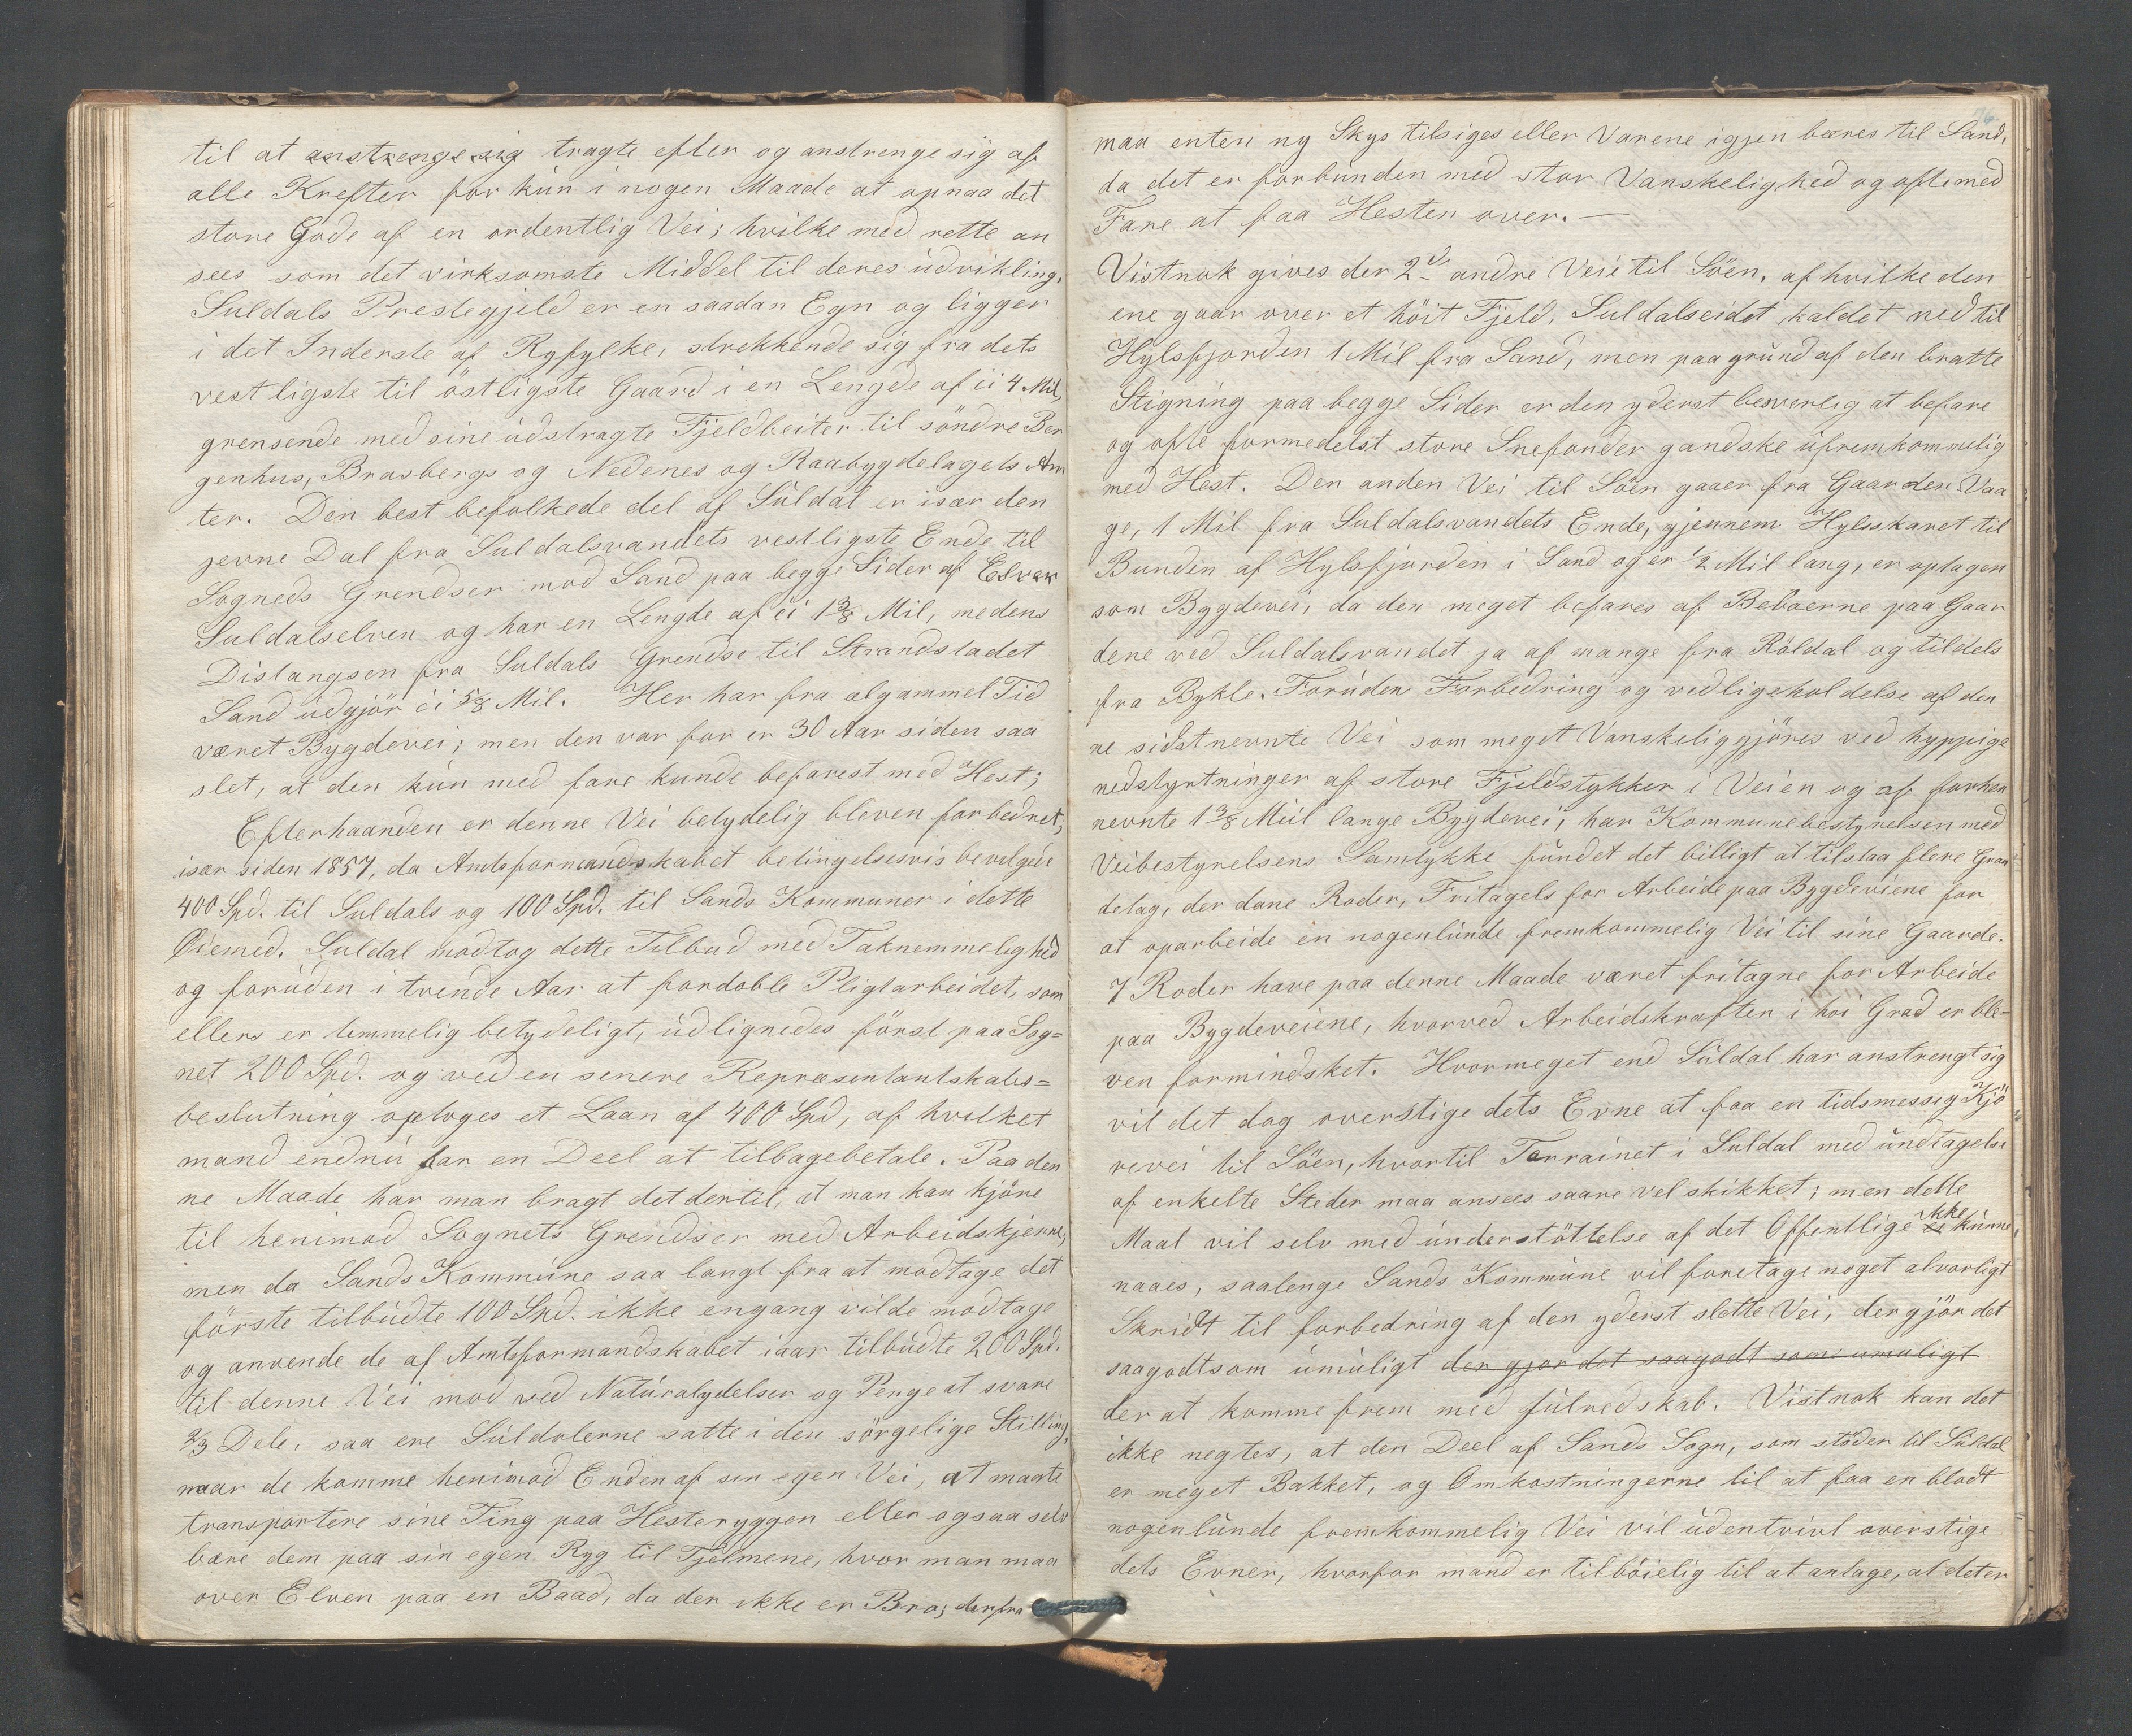 til at anstrenge sig tragte efter og anstrenge sig af
alle Krefter for kun i nogen Maade at opnaa det
store Gode af en ordentlig Vei; hvilke med rette an
sees som det virksomste Middel til deres udvikling.
Suldals Prestegjeld er en saadan Egn og ligger
i det Inderste af Ryfylke, strekkende sig fra dets
vestligste til östligste Gaard i en Lengde af ii 4 Mil,
grensende med sine udstragte Fjeldbeiter til söndre Ber
genhus, Brasbergs og Nedenes og Raabygdelagets Am
ter. Den best befolkede del af Suldal er især den
jevne Dal fra Suldalsvandets vestligste Ende til
Sogneds Grendser mod Sand paa begge Sider af Elven
Suldalselven og har en Lengde af ei 1 3/8 Mil, medens
Distangsen fra Suldals Grendse til Strandstadet
Sand udgjör ei 5/8 Mil. Her har fra algammel Tid
været Bygdevei; men den var for er 30 Aar siden saa
slet, at den kun med fare kunde befarest med Hest;
Efterhaanden er denne Vei betydelig bleven forbedret,
især siden 1857, da Amtsformandskabet betingelsesvis bevilgede
400 Spd. til Suldals og 100 Spd. til Sands Kommuner i dette
Øiemed. Suldal modtog dette Tilbud med Taknemmelighed
og foruden i trende Aar at fordoble Pligtarbeidet, som
ellers er temmelig betydeligt, udlignedes först paa Sog=
net 200 Spd. og ved en senere Repræsentantskabs=
beslutning optoges et Laan af 400 Spd, af hvilket
mand endnu har en Deel at tilbagebetale. Paa den
ne Maade har man bragt det dertil, at man kan kjöre
til henimod Sognets Grendser med Arbeidskjerre,
men da Sands Kommune saa langt fra at modtage det
förste tilbudte 100 Spd. ikke engang vilde modtage
og anvende de af Amtsformandskabet iaar tilbudte 200 Spd.
til denne Vei mod ved Naturalydelser og Penge at svare
2/3 Dele, saa ere Suldolerne satte i den sörgelige Stilling,
naar de komme henimod Enden af sin egen Vei, at maate
transportere sine Ting paa Hesteryggen eller ogsaa selv
bære dem paa sin egen Ryg til Tjelmene, hvor man maa
over Elven paa en Baad, da der ikke er Bro; derfra
maa enten ny Skys tilsiges eller Varene igjen bæres til Sand,
da det er forbunden med stor Vanskelighed og ofte med
Fare at faa Hesten over.—
Vistnok gives der 2de andre Veie til Söen. af hvilke den
ene gaar over et höit Fjeld, Suldalseidet kaldet ned til
Hylsfjorden 1 Mil fra Sand, men paa grund af den bratte
Stigning paa begge Sider er den yderst besverlig at befare
og ofte formedelst store Snefonder gandske ufremkommelig
med Hest. Den anden Vei til Söen gaaer fra Gaarden Vaa
ge, 1 Mil fra Suldalsvandets Ende, gjennem Hylsskaret til
Bunden af Hylsfjorden i Sand og er 1/2 Mil lang, er optagen
som Bygdevei, da den meget befares af Beboerne paa Gaar
dene ved Suldalsvandet ja af mange fra Röldal og tildels
fra Bykle. Foruden Forbedring og vedligeholdelse af den
ne sidstnevnte Vei som meget Vanskeliggjöres ved hyppige
nedstyrtninger af store Fjeldstykker i Veien og af forhen
nevnte 1 3/8 Miil lange Bygdevei, har Kommunebestyrelsen med
Veibestyrelsens Samtykke fundet det billigt at tilstaa flere Gran
delag, der dane Roder, Fritagels for Arbeide paa Bygdeviene for
at oparbeide en nogenlunde fremkommelig Vei til sine Gaarde.
7 Roder have paa denne Maade været fritagne for Arbeide
paa Bygdeveiene, hvorved Arbeidskraften i höi Grad er ble=
ven formindsket. Hvormeget end Suldal har anstrengt sig
vil det dog overstige dets Evne at faa en tidsmessig Kjö
revei til Söen, hvortil Terrainet i Suldal med undtagelse
af enkelte Steder maa ansees saare vel skikket; men dette
Maal vil selv med understöttelse af det Offentlige ei ikke kunne
naaes, saalenge Sands Kommune vil foretage noget alvorligt
Skridt til forbedring af den yderst slette Vei, der gjör det
saagodtsom umuligt der gjor det saagodt som umuligt
der at komme frem med Julredskab. Vistnok kan det
ikke negtes, at den Deel af Sands Sogn, som stöder til Suldal
er meget Bakket, og Omkostningerne til at faa en blodt
nogenlunde fremkommelig Vei vil udentvivl overstige
dets Evner, hvorfor mand er tilböielig til at antage, at det er